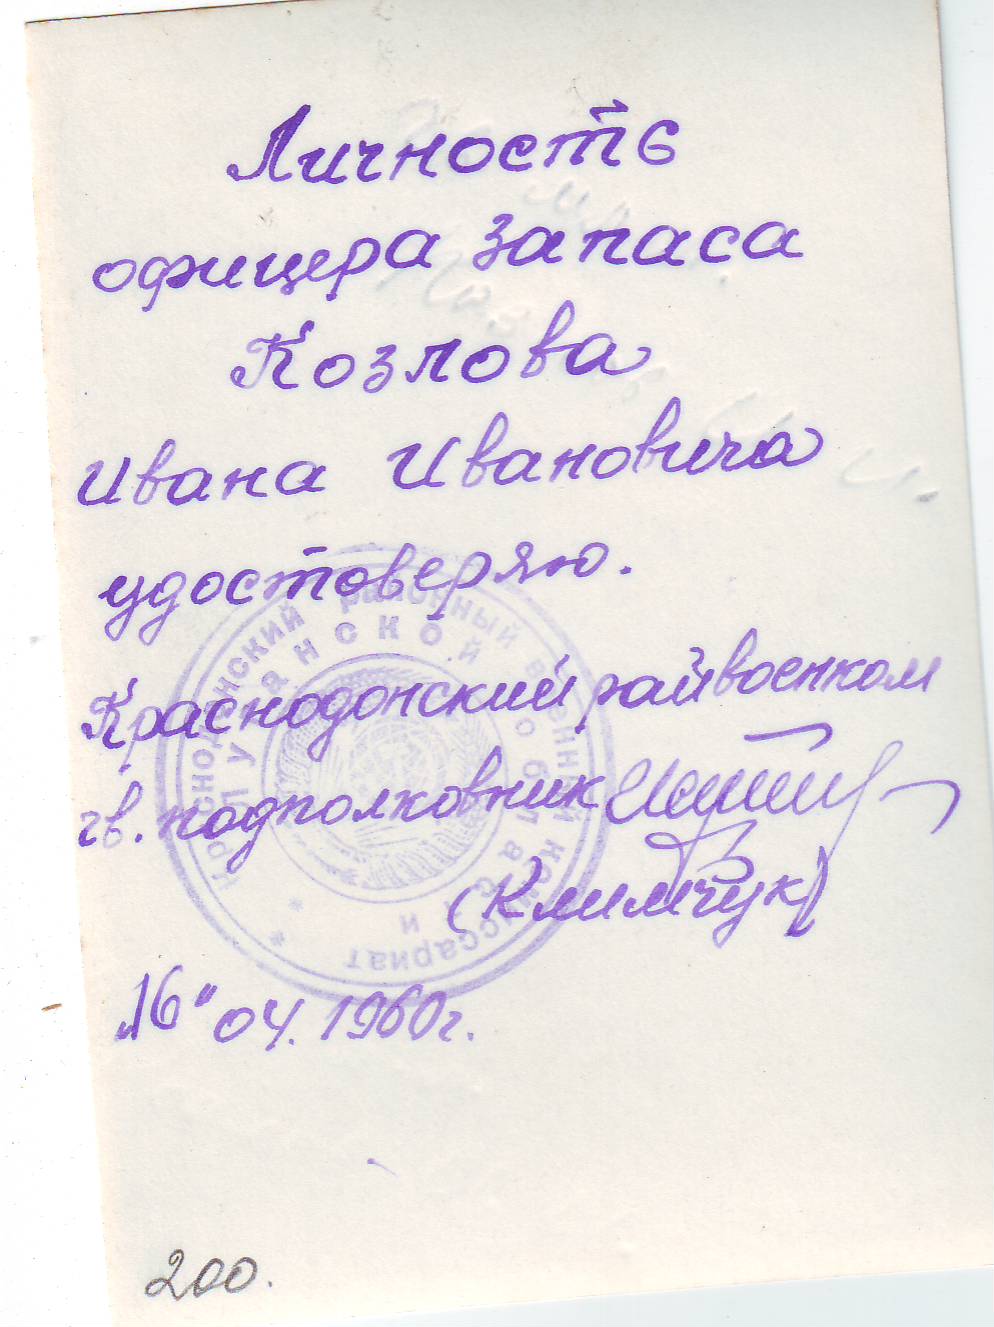 Личность
офицера запаса
Козлова
Ивана Ивановича
удостоверяю.
Краснодонский райвоенком
гв. подполковник
(Климчук)
„16" 04. 1960г.
Краснодонский районный военный комиссариат
Луганской области
200.